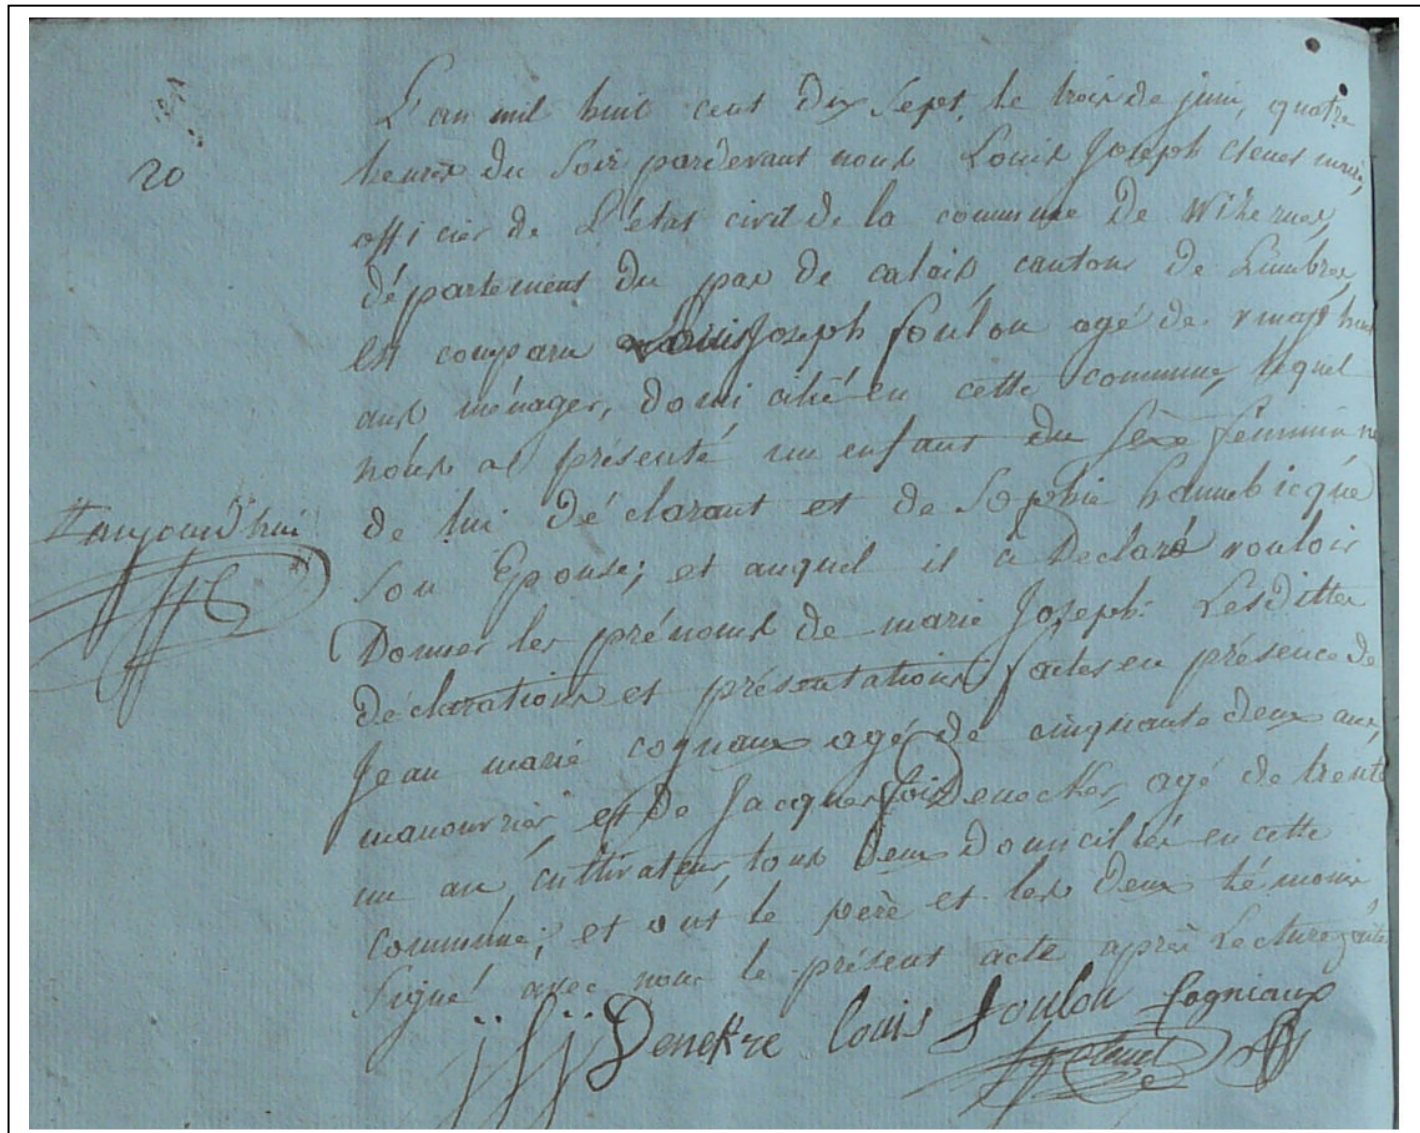 L'an mil huit cent dix sept, le trois de juin, quatre
20
heures du soir pardevant nous Louis Joseph Clenet maire,
officier de L'état civil de la commune de Wikernes,
département du pas de calais, canton de Lumbres,
est comparu Louis Joseph foulon agé de vingt huit
ans ménager, domicilié en cette commune, lequel
nous a présenté un enfant du sexe féminin né
aujourd'hui
de lui déclarant et de Sophie hannebicque
son Epouse; et auquel il a Declaré vouloir
Donner les prénoms de marie Joseph. Lesdittes
déclarations et présentations faites en présence de
Jean marie cognaux agé de cinquante deux ans,
manouvrier, et de Jacques Denecker, agé de trente
un an, cultivateur, tous deux domiciliés en cette
commune; et ont le père et les deux témoins
signé avec nous le présent acte après Lecture faite
jjj Denekre louis foulon Cogniaux